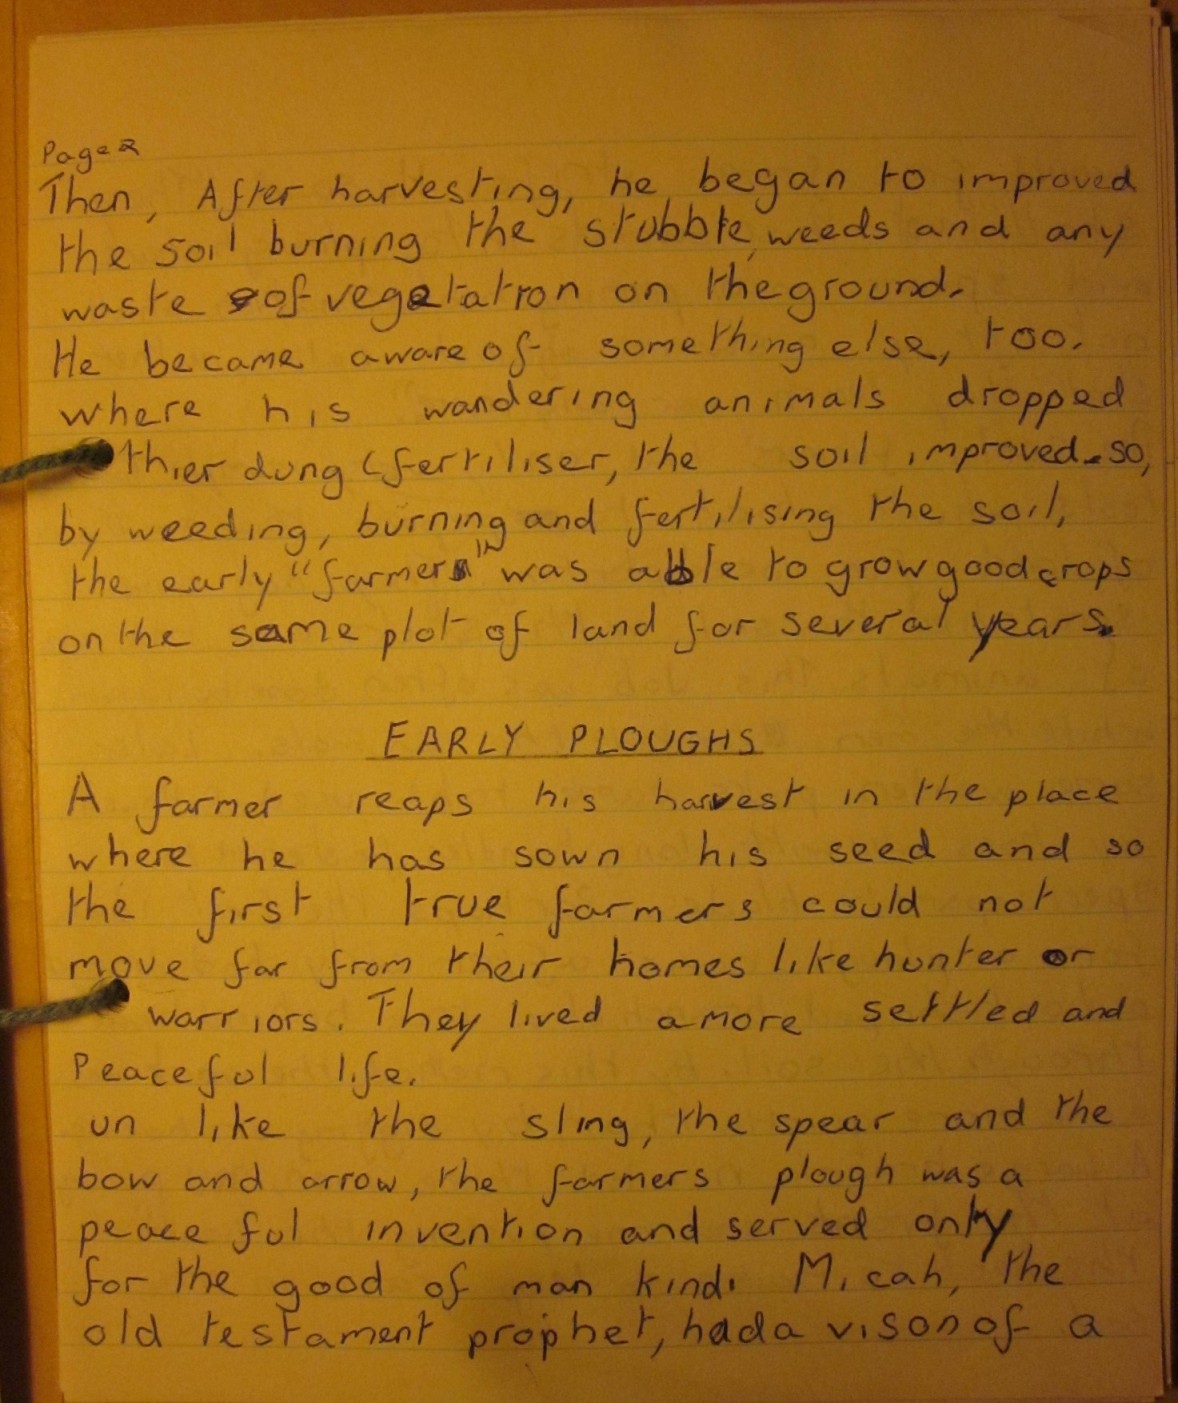 Page 2
Then, After harvesting, he began to improved
the soil burning the stubble, weeds and any
waste of vegetation on the ground.
He became aware of something else, too.
where his wandering animals dropped
thier dung (fertiliser, the soil improved. so,
by weeding, burning and fertilising the soil,
the early "farmer" was able to grow good crops
on the same plot of land for several years.
EARLY PLOUGHS
A farmer reaps his harvest in the place
where he has sown his seed and so
the first true farmers could not
move far from their homes like hunter or
warriors. They lived a more settled and
Peaceful life.
un like the sling, the spear and the
bow and arrow, the farmers plough was a
peace ful invention and served only
for the good of man kind. Micah, the
old testament prophet, had a vison of a